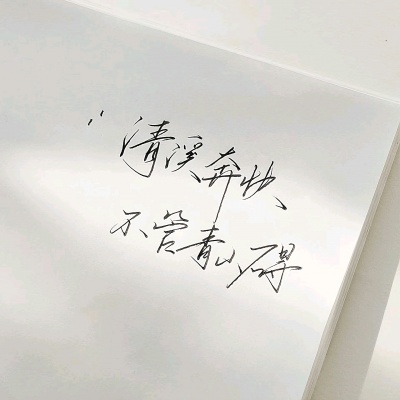 “清溪奔快、
不管青山碍